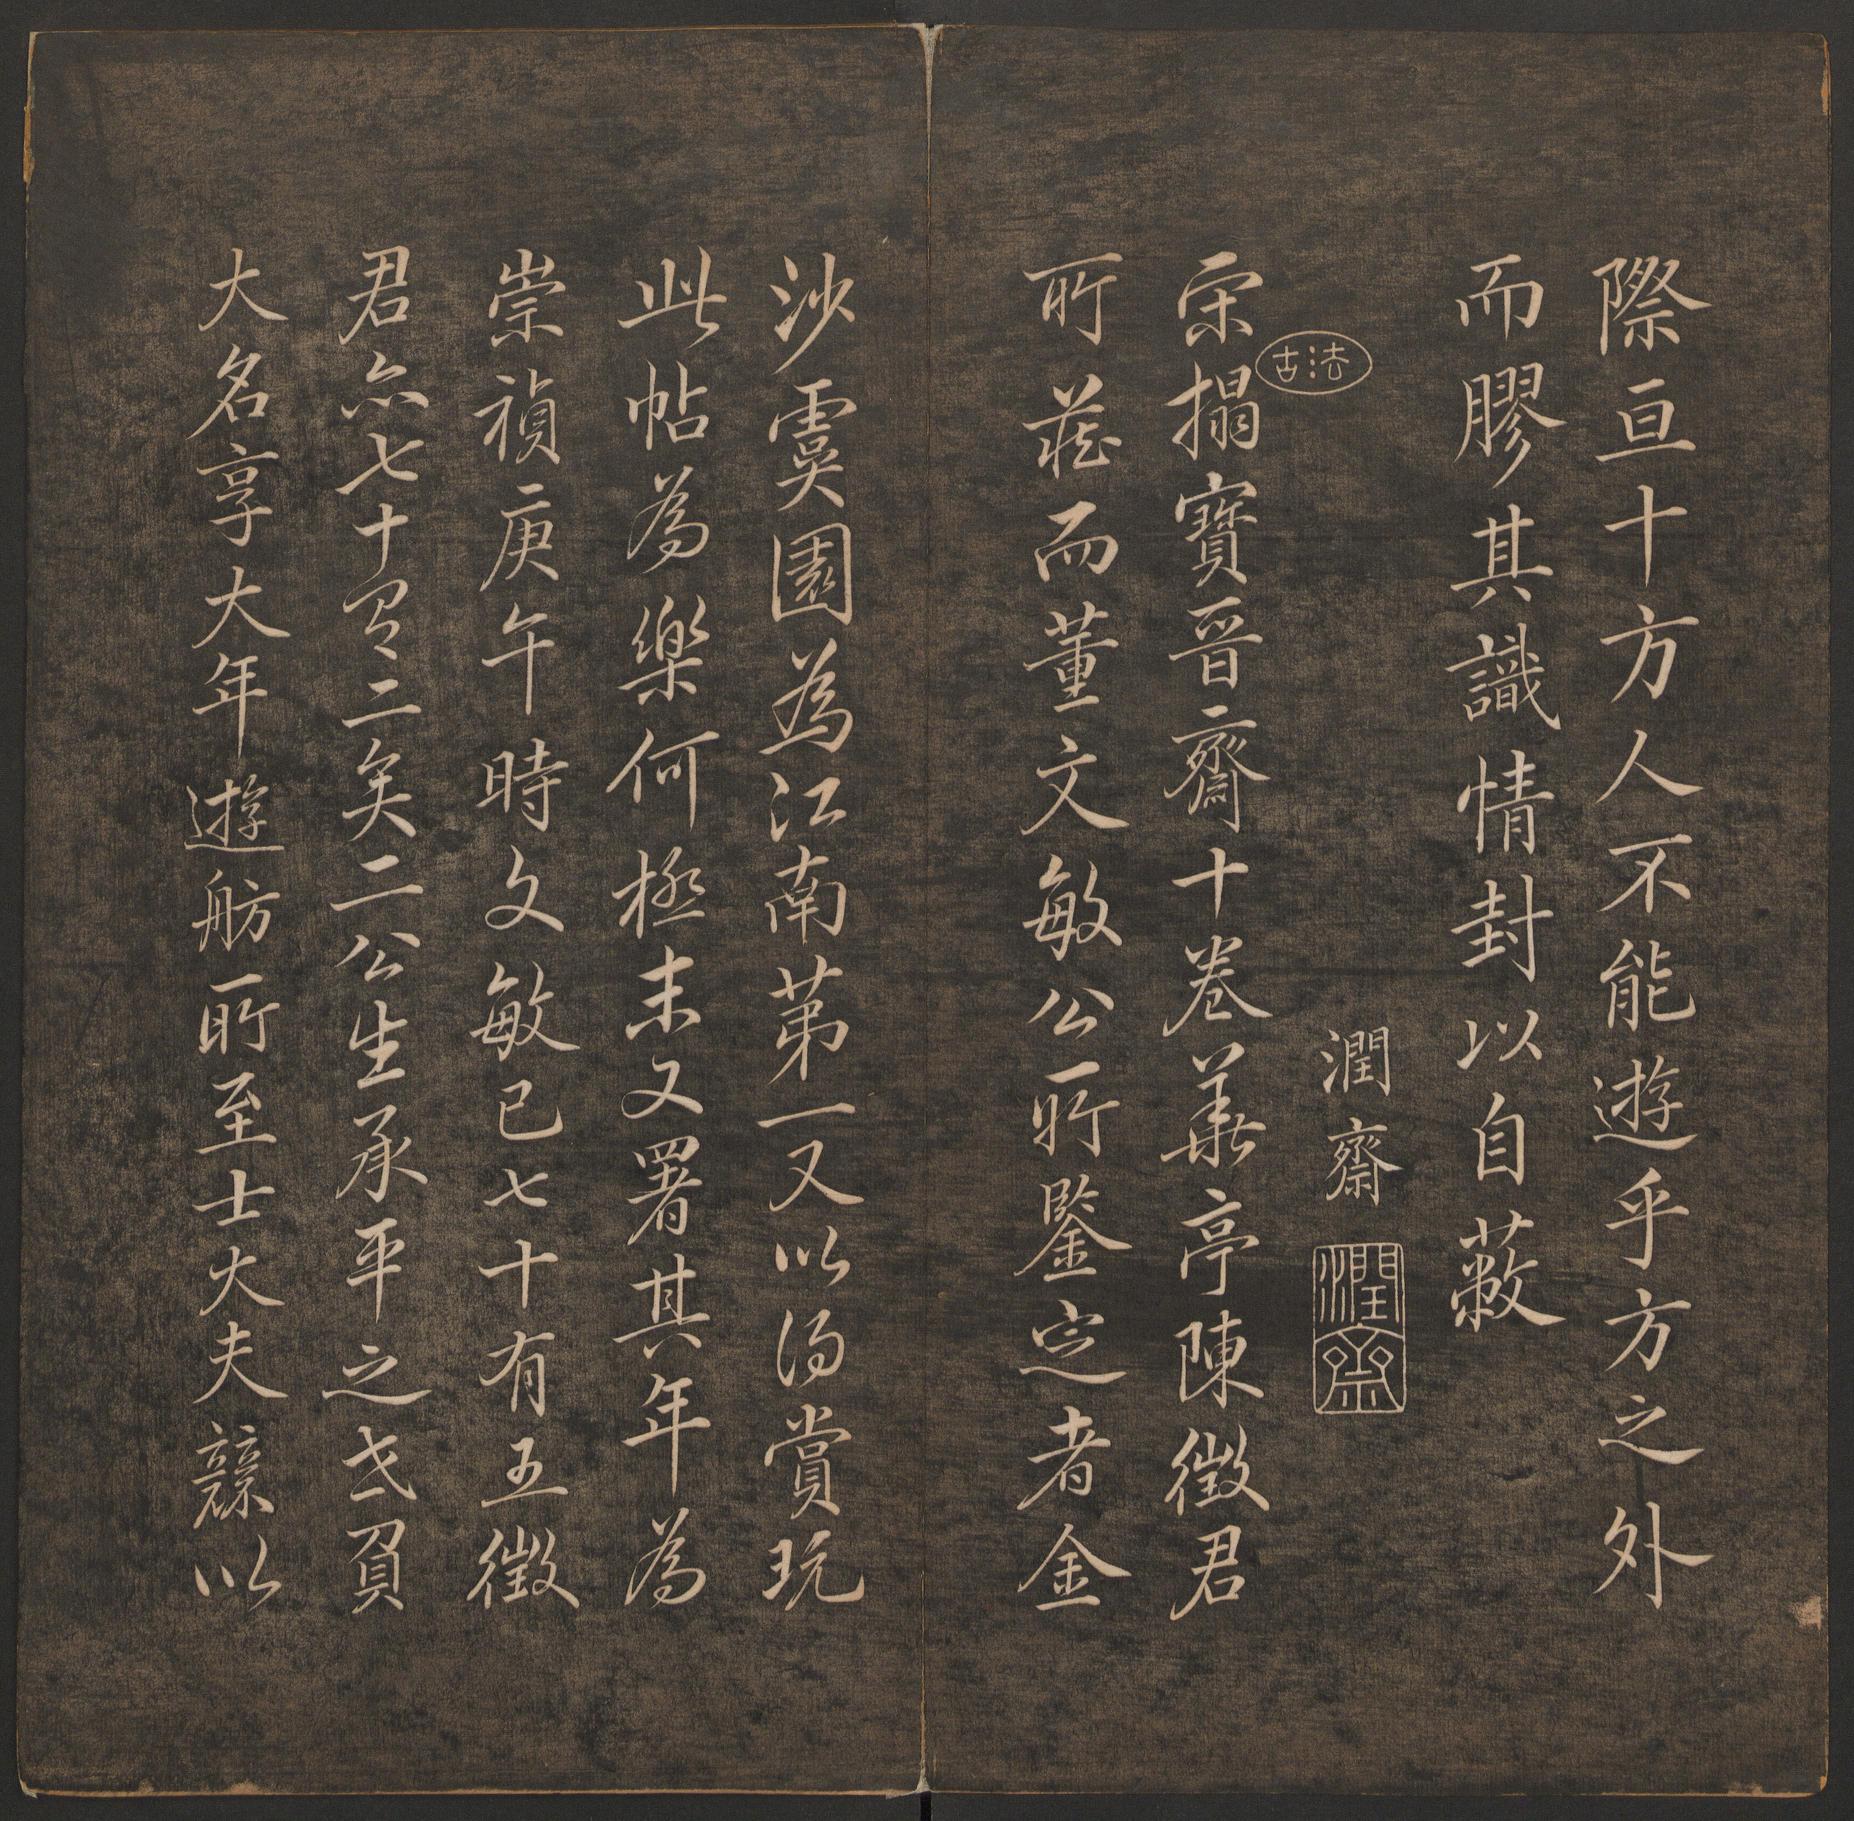 際亘十方人不能遊乎方之外
而膠其識情封以自蔽
潤齋
潤齋
法古
宋搨寶晉齋十卷華亭陳徵君
所藏而董文敏公所鑒定者金
沙虞園為江南第一又以得賞玩
此帖為樂何極末又署其年為
崇禎庚午時文敏已七十有五徵
君亦七十有二矣二公生承平之世負
大名享大年遊舫所至士大夫競以